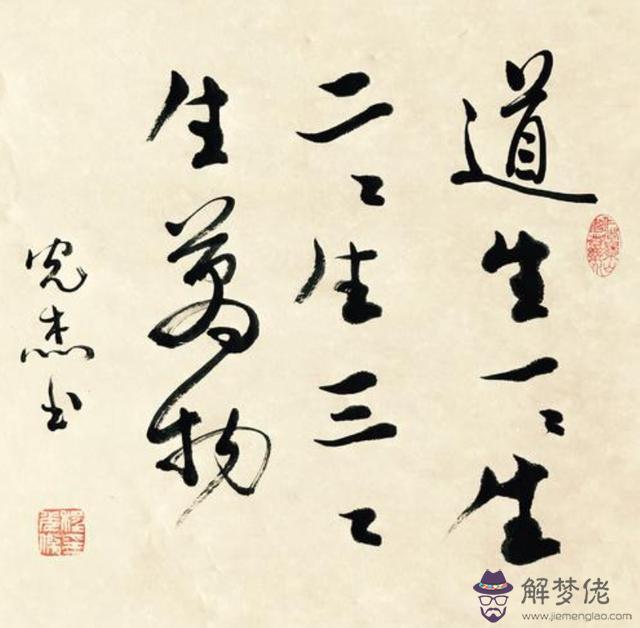 道生一〻生
二〻生三〻
生萬物
杰书
解梦佬
www.jiemenglao.com